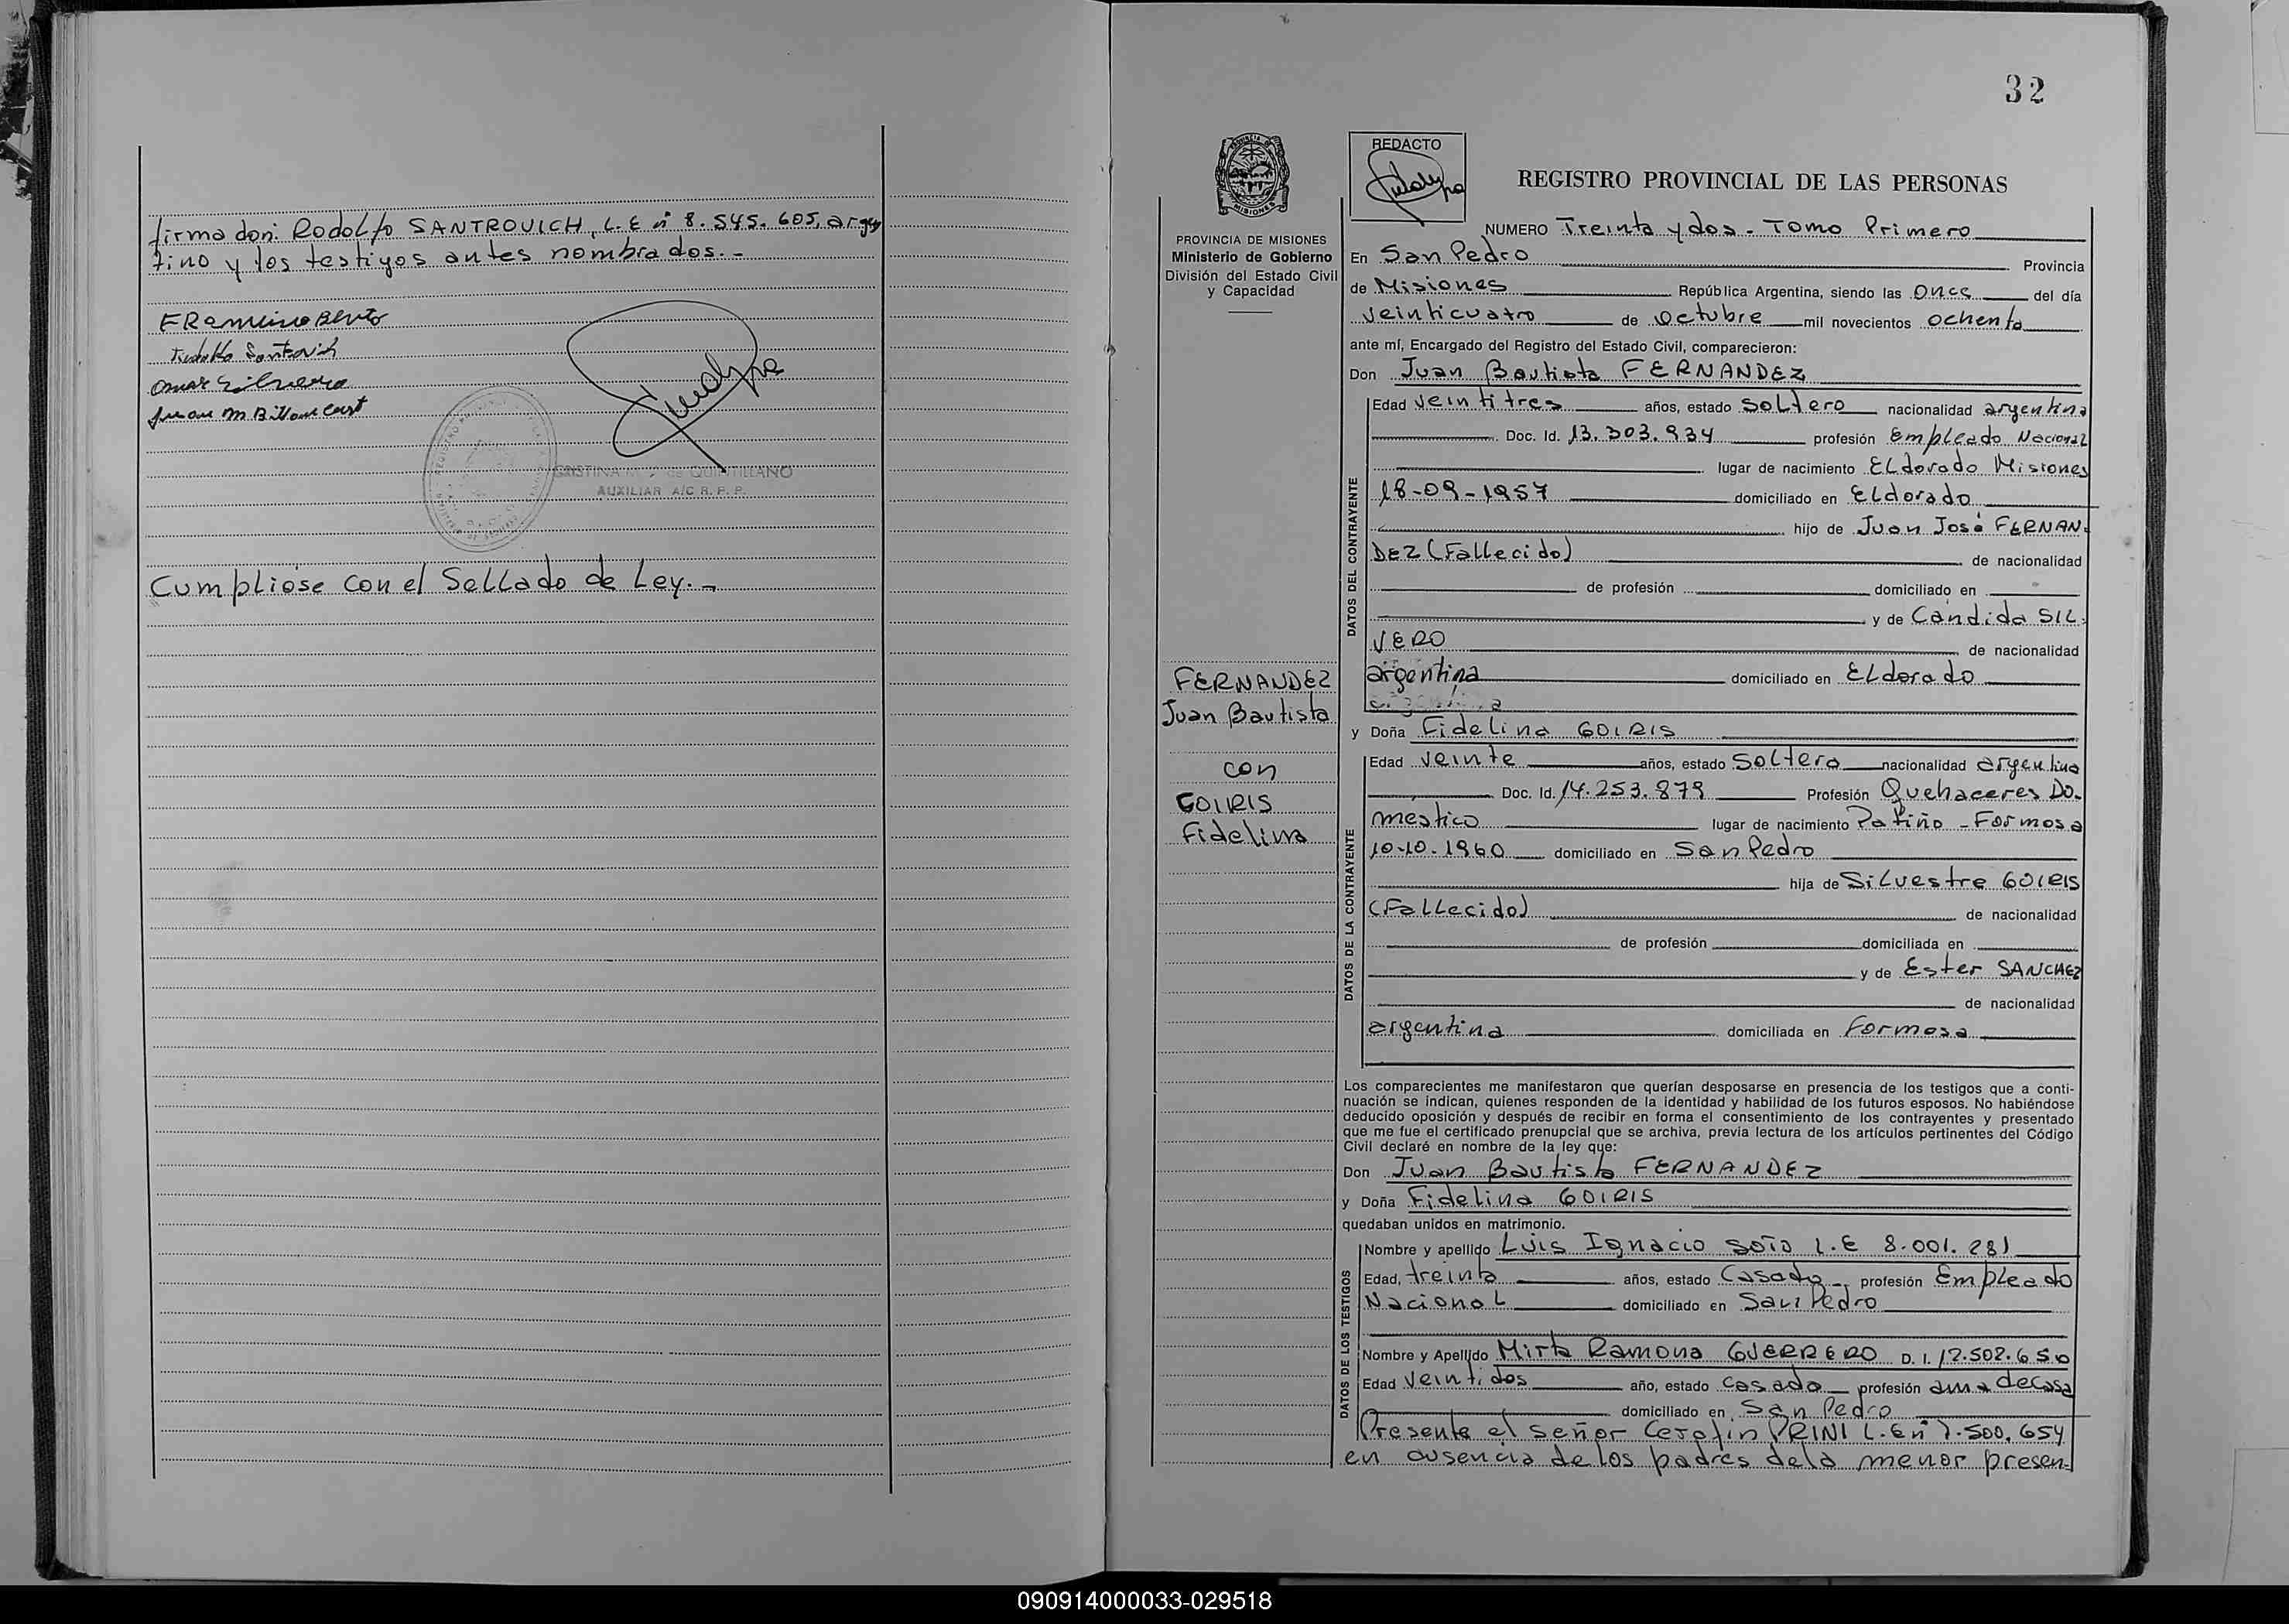 firma don: Rodolfo SANTROVICH, L.E nº 8.545.605, argen
tino y los testigos antes nombrados.-
CRISTINA de QUINTILLANO
AUXILIAR A/C R. P. P.
Cumpliose con el Sellado de Ley.-
32
PROVINCIA DE MISIONES
Ministerio de Gobierno
División del Estado Civil
y Capacidad
FERNANDEZ
Juan Bautista
con
GOIRIS
Fidelina
REDACTO
REGISTRO PROVINCIAL DE LAS PERSONAS
NUMERO Treinta y dos - Tomo Primero
En San Pedro Provincia
de Misiones República Argentina, siendo las once del día
veinticuatro de Octubre mil novecientos ochenta
ante mí, Encargado del Registro del Estado Civil, comparecieron:
Don Juan Bautista FERNANDEZ
DATOS DEL CONTRAYENTE
Edad veintitres años, estado soltero nacionalidad argentina
Doc. Id. 13.303.934 profesión Empleado Nacional
lugar de nacimiento ELdorado Misiones
18-09-1957 domiciliado en ELdorado
hijo de Juan José FERNAN-
DEZ (Fallecido) de nacionalidad
de profesión domiciliado en
y de Cándida SIL-
VERO de nacionalidad
argentina domiciliado en ELdorado
y Doña Fidelina GOIRIS
DATOS DE LA CONTRAYENTE
Edad veinte años, estado soltera nacionalidad argentina
Doc. Id. 14.253.879 Profesión Quehaceres Do-
mestico lugar de nacimiento Patiño - Formosa
10-10-1960 domiciliado en San Pedro
hija de Silvestre GOIRIS
(Fallecido) de nacionalidad
de profesión domiciliada en
y de Ester SANCHEZ
de nacionalidad
argentina domiciliada en Formosa
Los comparecientes me manifestaron que querían desposarse en presencia de los testigos que a conti-
nuación se indican, quienes responden de la identidad y habilidad de los futuros esposos. No habiéndose
deducido oposición y después de recibir en forma el consentimiento de los contrayentes y presentado
que me fue el certificado prenupcial que se archiva, previa lectura de los artículos pertinentes del Código
Civil declaré en nombre de la ley que:
Don Juan Bautista FERNANDEZ
y Doña Fidelina GOIRIS
quedaban unidos en matrimonio.
DATOS DE LOS TESTIGOS
Nombre y apellido Luis Ignacio SOTO L.E 8.001.281
Edad, treinta años, estado Casado profesión Empleado
Nacional domiciliado en San Pedro
Nombre y Apellido Mirta Ramona GUERRERO D.I. 12.502.650
Edad veintidos año, estado casada profesión ama de casa
domiciliado en San Pedro
Presente el señor Cerafin PRINI L.E nº 7.500.654
en ausencia de los padres dela menor presen-
090914000033-029518